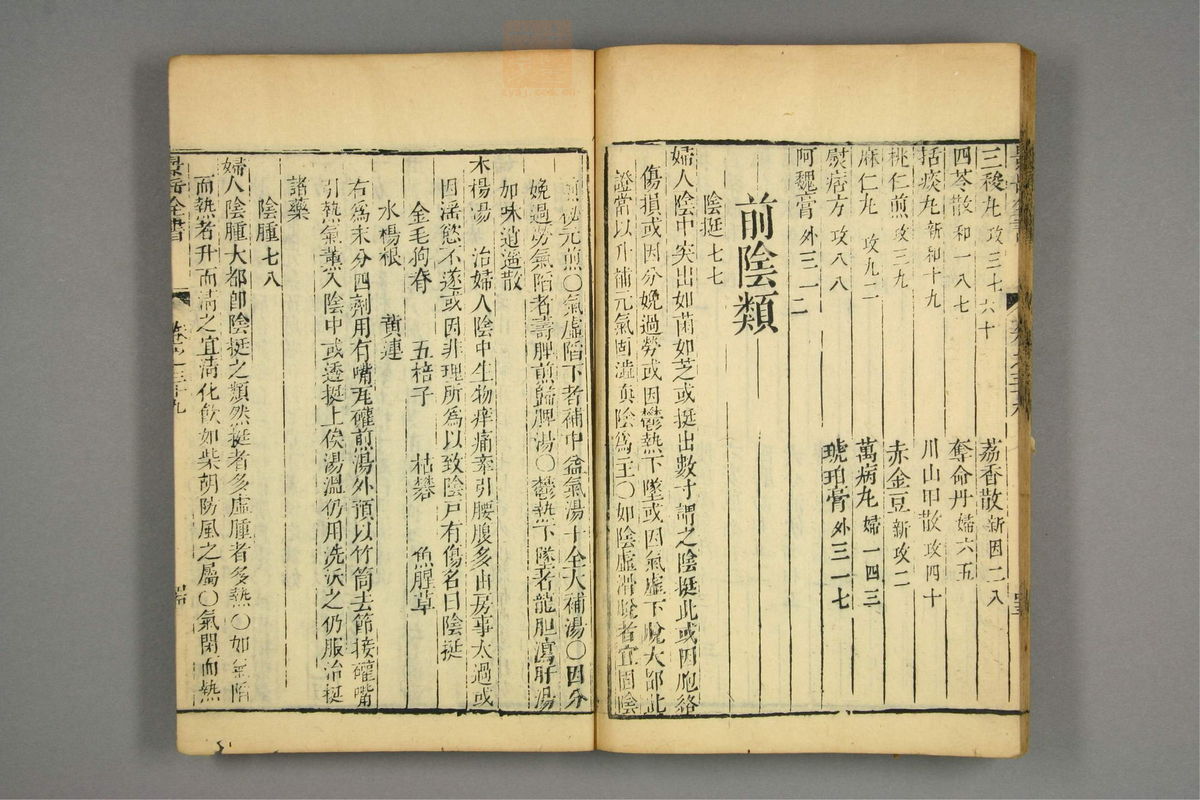 三稜丸 攻三七 六十
荔香散 新因二八
四苓散 和一八七
奪命丹 婦六五
括痰丸 新和十九
川山甲散 攻四十
桃仁煎 攻三九
赤金豆 新攻二
麻仁丸 攻九二
萬病丸 婦一四三
熨痞方 攻八八
琥珀膏 外三一七
阿魏膏 外三一二
前陰類
陰挺 七七
婦人陰中突出如菌如芝或挺出數寸謂之陰挺此或因胞絡
傷損或因分娩過勞或因鬱熱下墜或因氣虛下脫大都此
證當以升補元氣固澁真陰為主○如陰虛滑脫者宜固陰
煎秘元煎○氣虛陷下者補中益氣湯十全大補湯○因分
娩過勞氣陷者壽脾煎歸脾湯○鬱熱下墜者龍胆瀉肝湯
加味逍遙散
水楊湯 治婦人陰中生物痒痛牽引腰腹多由房事太過或
因淫慾不遂或因非理所為以致陰戶有傷名曰陰挺
金毛狗脊 五棓子 枯礬 魚腥草
水楊根 黄連
右為末分四劑用有嘴瓦礶煎湯外預以竹筒去節接礶嘴
引熱氣薰入陰中或透挺上俟湯溫仍用洗沃之仍服治挺
諸藥
陰腫 七八
婦人陰腫大都即陰挺之類然挺者多虛腫者多熱○如氣陷
而熱者升而清之宜清化飲如柴胡防風之屬○氣閉而熱
景岳全書
卷之三十九